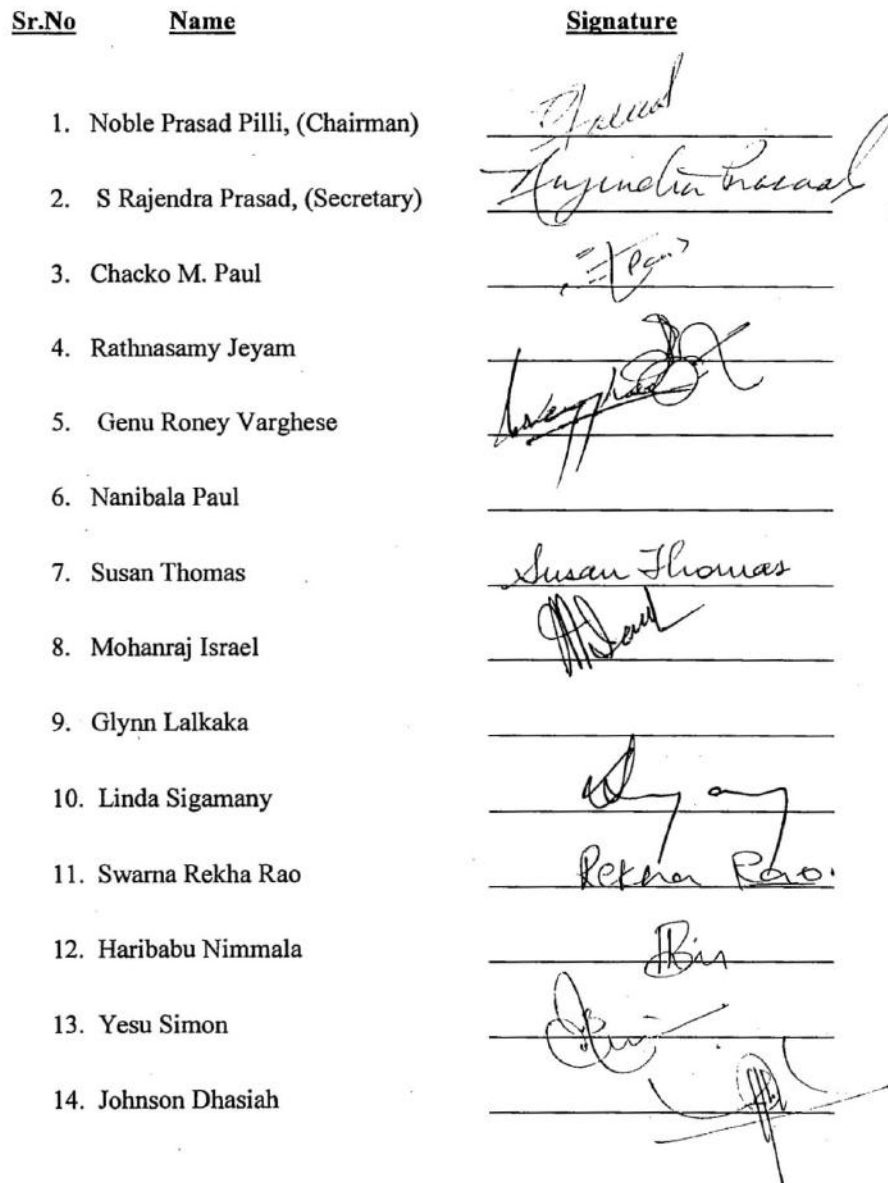 Sr.No Name Signature
1. Noble Prasad Pilli, (Chairman)
2. S Rajendra Prasad, (Secretary) Rajendra Prasad
3. Chacko M. Paul
4. Rathnasamy Jeyam
5. Genu Roney Varghese
6. Nanibala Paul
7. Susan Thomas Susan Thomas
8. Mohanraj Israel
9. Glynn Lalkaka
10. Linda Sigamany
11. Swarna Rekha Rao Rekha Rao.
12. Haribabu Nimmala
13. Yesu Simon
14. Johnson Dhasiah